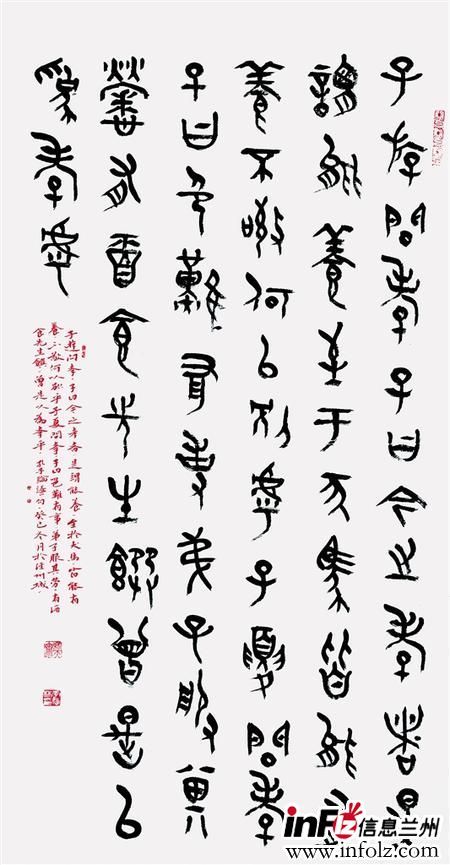 子游問孝子曰今之孝者是
謂能養至于犬馬皆能有
養不敬何以別乎子夏問孝
子曰色難有事弟子服其
勞有酒食先生饌曾是以
為孝乎
子游问孝子曰今之孝者是謂能養至於犬馬皆能有
養不敬何以別乎子夏問孝子曰色難有事弟子服其勞有酒
食先生饌曾是以為孝乎孔子論語句癸巳冬月於
infolz信息兰州
www.infolz.com